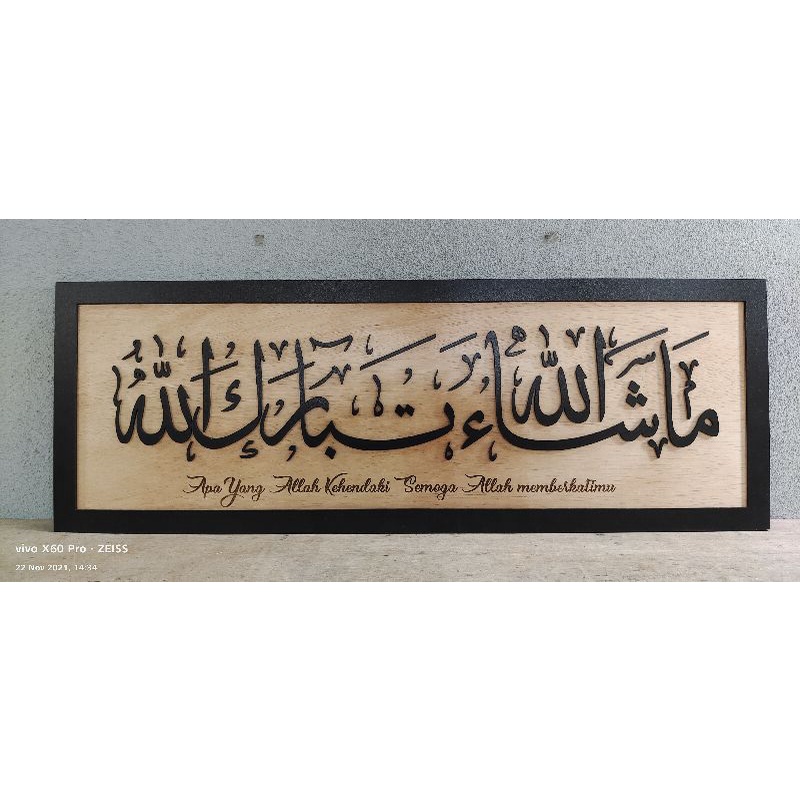 ما شاء الله تبارك الله
Apa Yang Allah Kehendaki Semoga Allah memberkatimu
vivo X60 Pro · ZEISS
22 Nov 2021, 14:34